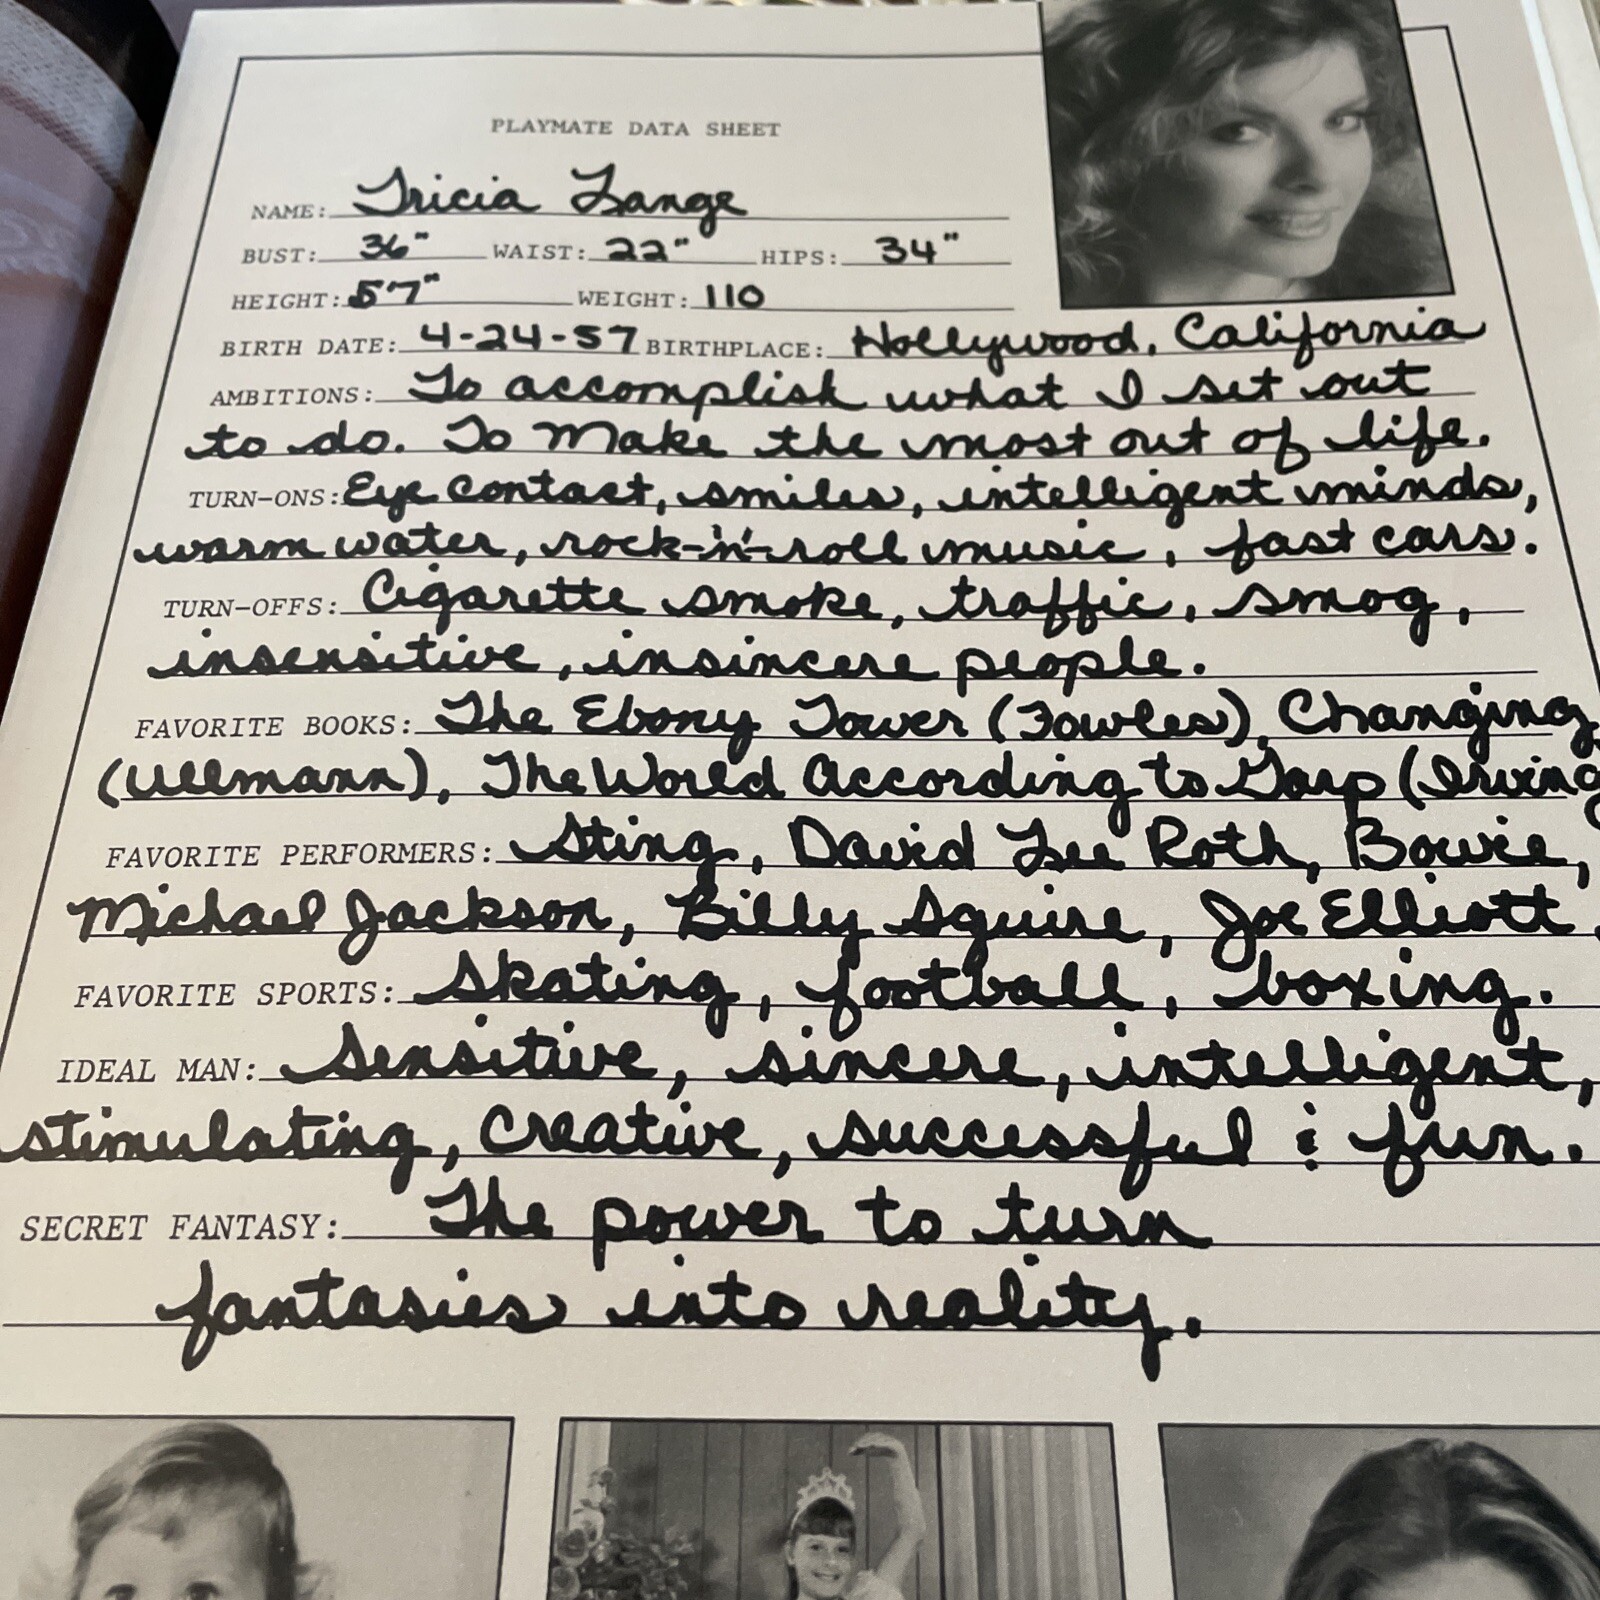 PLAYMATE DATA SHEET
NAME: Tricia Lange
BUST: 36" WAIST: 22" HIPS: 34"
HEIGHT: 5'7" WEIGHT: 110
BIRTH DATE: 4-24-57 BIRTHPLACE: Hollywood, California
AMBITIONS: To accomplish what I set out
to do. To Make the most out of life.
TURN-ONS: Eye contact, smiles, intelligent minds,
warm water, rock-'n'-roll music, fast cars.
TURN-OFFS: Cigarette smoke, traffic, smog,
insensitive, insincere people.
FAVORITE BOOKS: The Ebony Tower (Fowles), Changing
(Ullmann), The World According to Garp (Irving
FAVORITE PERFORMERS: Sting, David Lee Roth, Bowie,
Michael Jackson, Billy Squire, Joe Elliott.
FAVORITE SPORTS: Skating, football, boxing.
IDEAL MAN: Sensitive, sincere, intelligent,
stimulating, creative, successful & fun.
SECRET FANTASY: The power to turn
fantasies into reality.